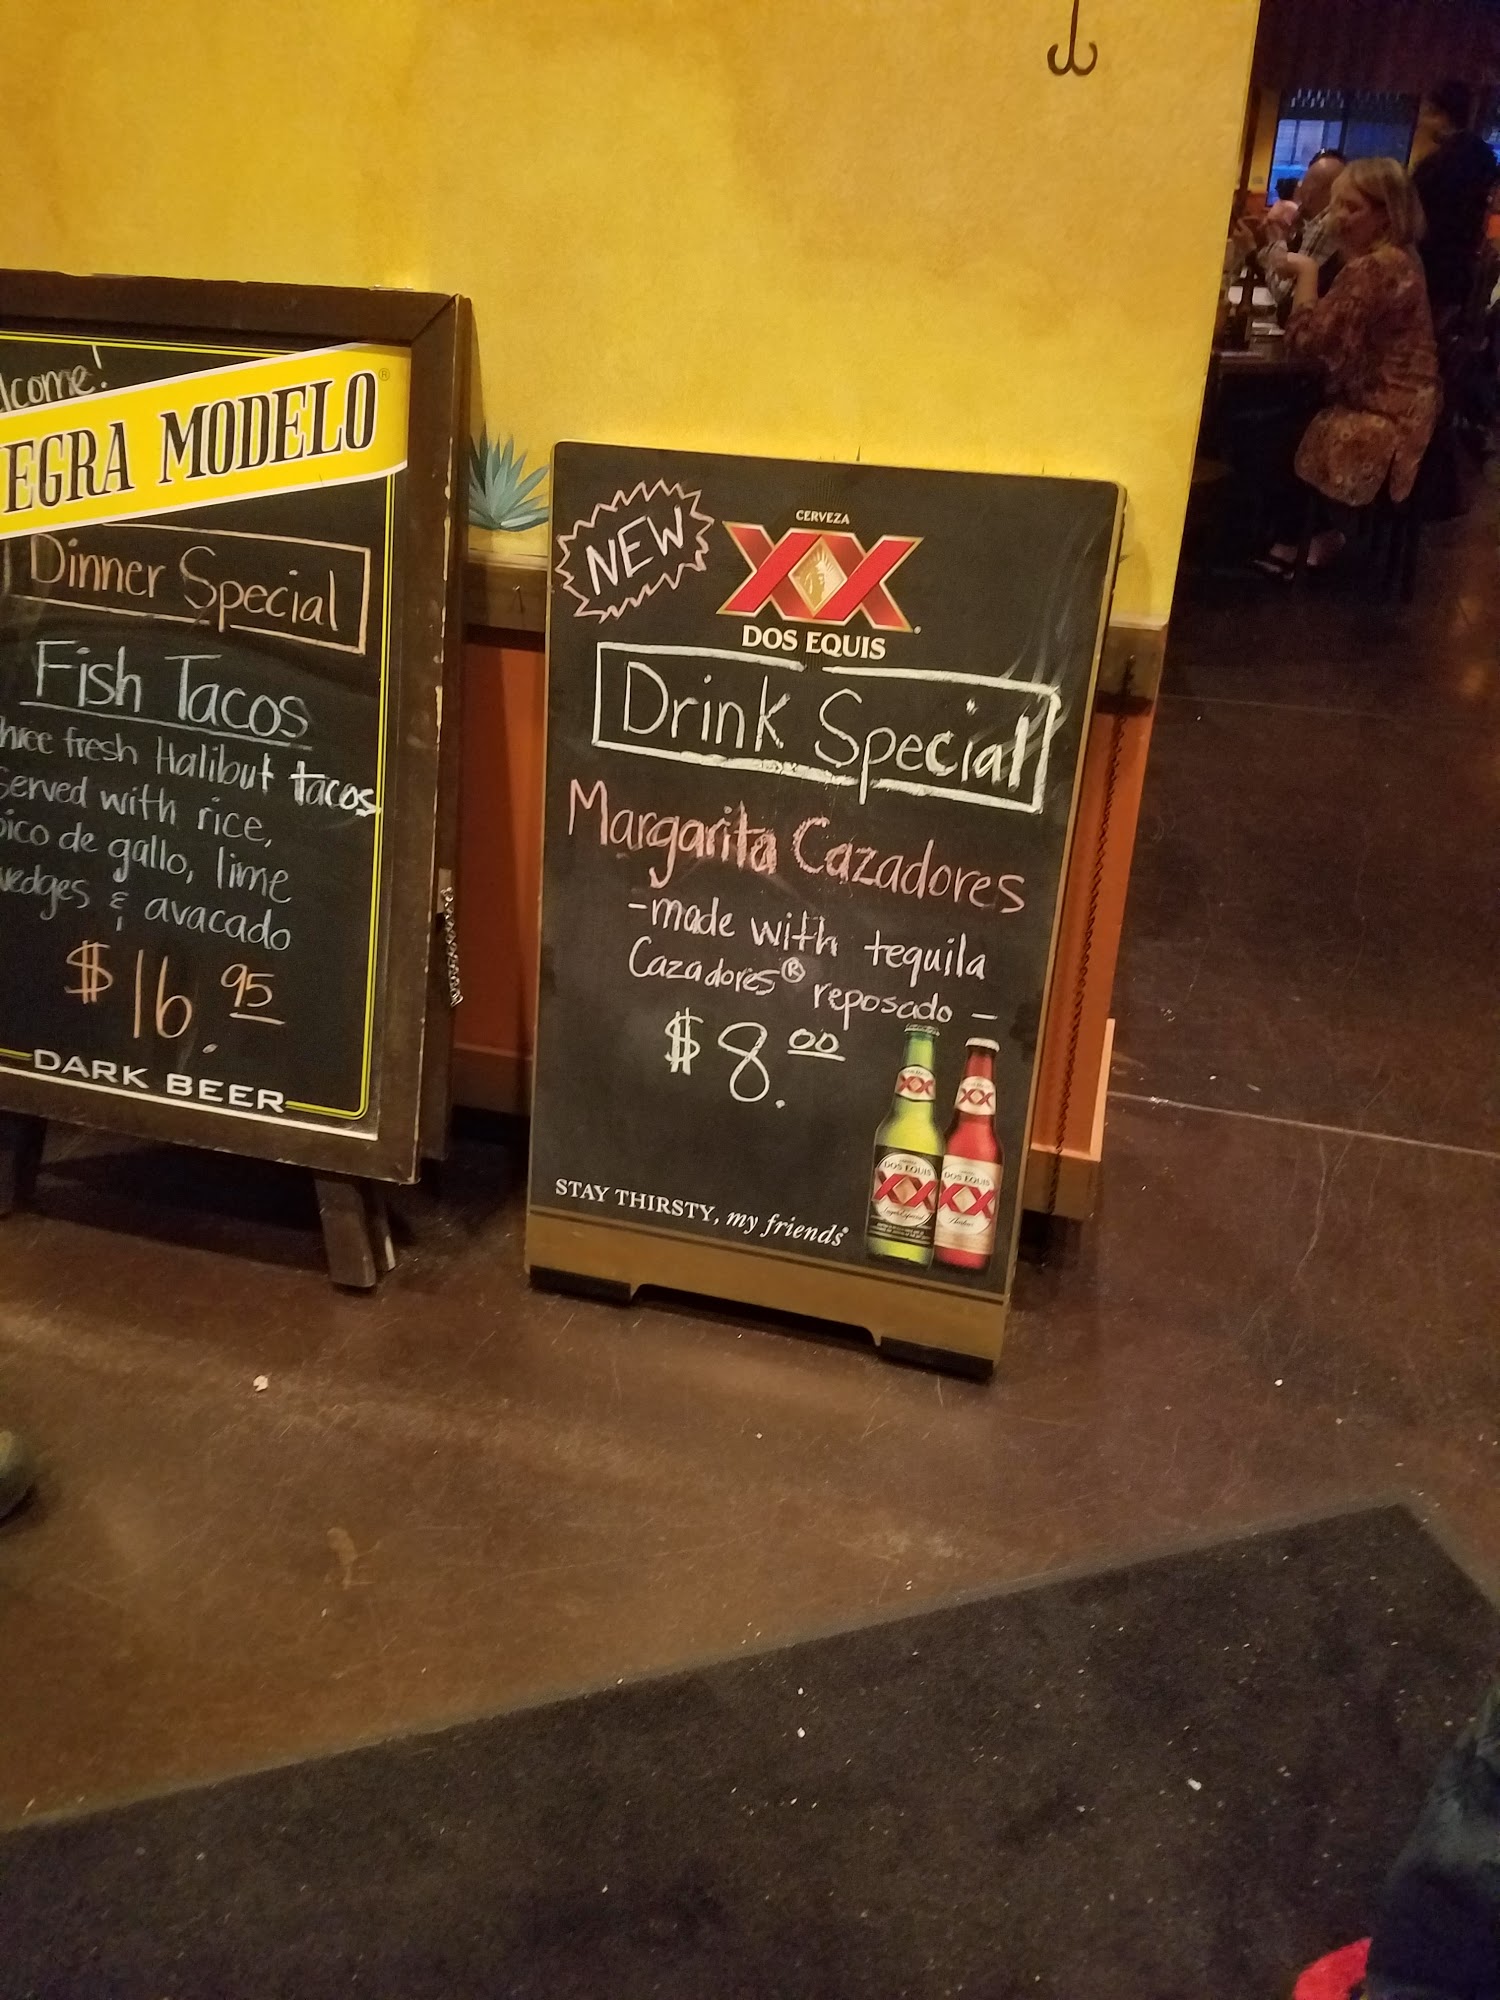 lcome!
EGRA MODELO®
Dinner Special
Fish Tacos
hree fresh Halibut tacos
served with rice,
pico de gallo, lime
wedges & avacado
$16.95
DARK BEER
NEW
CERVEZA
XX
DOS EQUIS
Drink Special
Margarita Cazadores
-made with tequila
Cazadores® reposado -
$8.00
XX
XX
DOS EQUIS
XX
DOS EQUIS
XX
STAY THIRSTY, my friends®